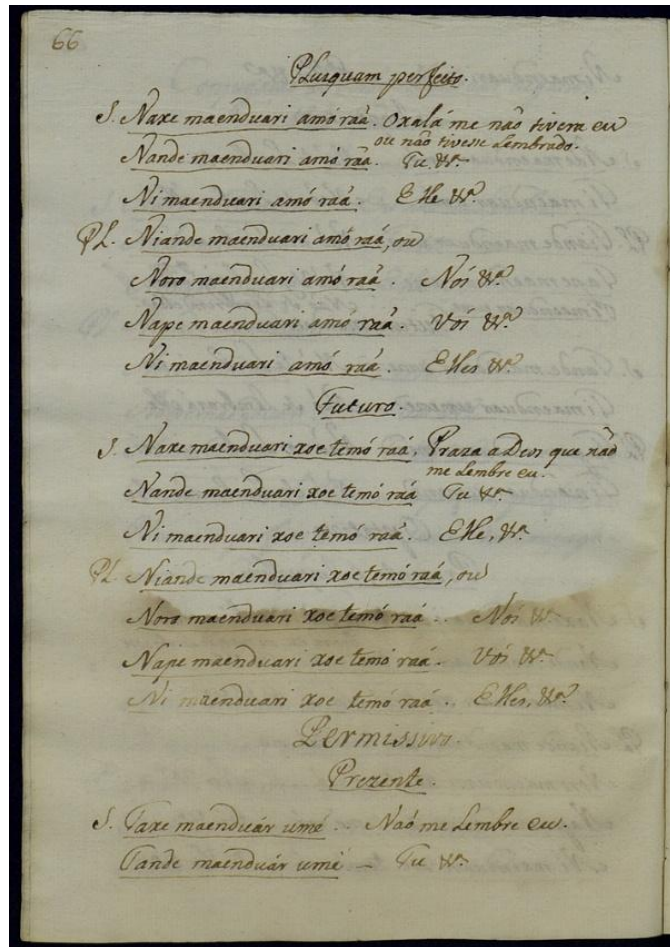 66
PLusquam perfeito.
S. Naxe maenduari amó raá. Oxalá me naõ tivera eu
ou naõ tivesse Lembrado.
Nande maenduari amó raá. Tu &ª.
Ni maenduari amó raá. Elle &ª.
PL. Niande maenduari amó raá, ou
Noro maenduari amó raá. Nós &ª.
Nape maenduari amó raá. Vós &ª.
Ni maenduari amó raá. Elles &ª.
Futuro.
S. Naxe maenduari xoe temó raá. Praza a Deos que naõ
me Lembre eu.
Nande maenduari xoe temó raá Tu &ª.
Ni maenduari xoe temó raá. Elle, &ª.
PL. Niande maenduari xoe temó raá, ou
Noro maenduari xoe temó raá.. Nós &ª.
Nape maenduari xoe temó raá. Vós &ª.
Ni maenduari xoe temó raá.. Elles, &ª.
Permissivo.
Prezente.
S. Taxe maenduár umé.. Naó me Lembre eu.
Tande maenduár umé — Tu &ª.